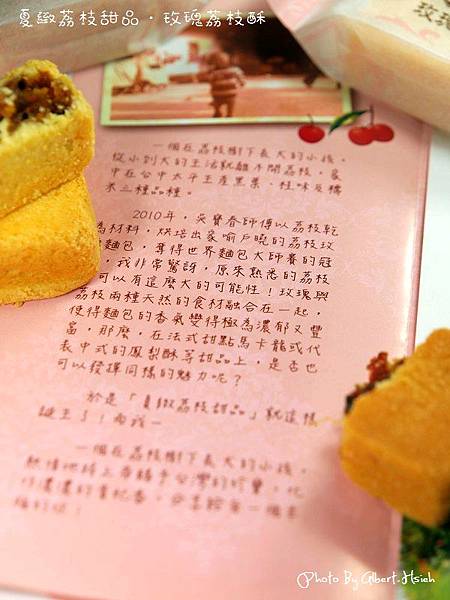 夏緻荔枝甜品・玫瑰荔枝酥
玫瑰
一個在荔枝樹下長大的小孩，
從小到大的生活就離不開荔枝，家
中在台中太平主產黑葉、桂味及糯
米三種品種。
2010年，吳寶春師傅以荔枝乾
為材料，烘培出家喻戶曉的荔枝玫
麵包，奪得世界麵包大師賽的冠
，我非常驚訝，原來熟悉的荔枝
可以有這麼大的可能性！玫瑰與
荔枝兩種天然的食材融合在一起，
使得麵包的香氣變得極為濃郁又豐
富，那麼，在法式甜點馬卡龍或代
表中式的鳳梨酥等甜品上，是否也
可以發揮同樣的魅力呢？
於是「夏緻荔枝甜品」就這樣
誕生了！而我—
一個在荔枝樹下長大的小孩，
Photo By Albert.Hsieh